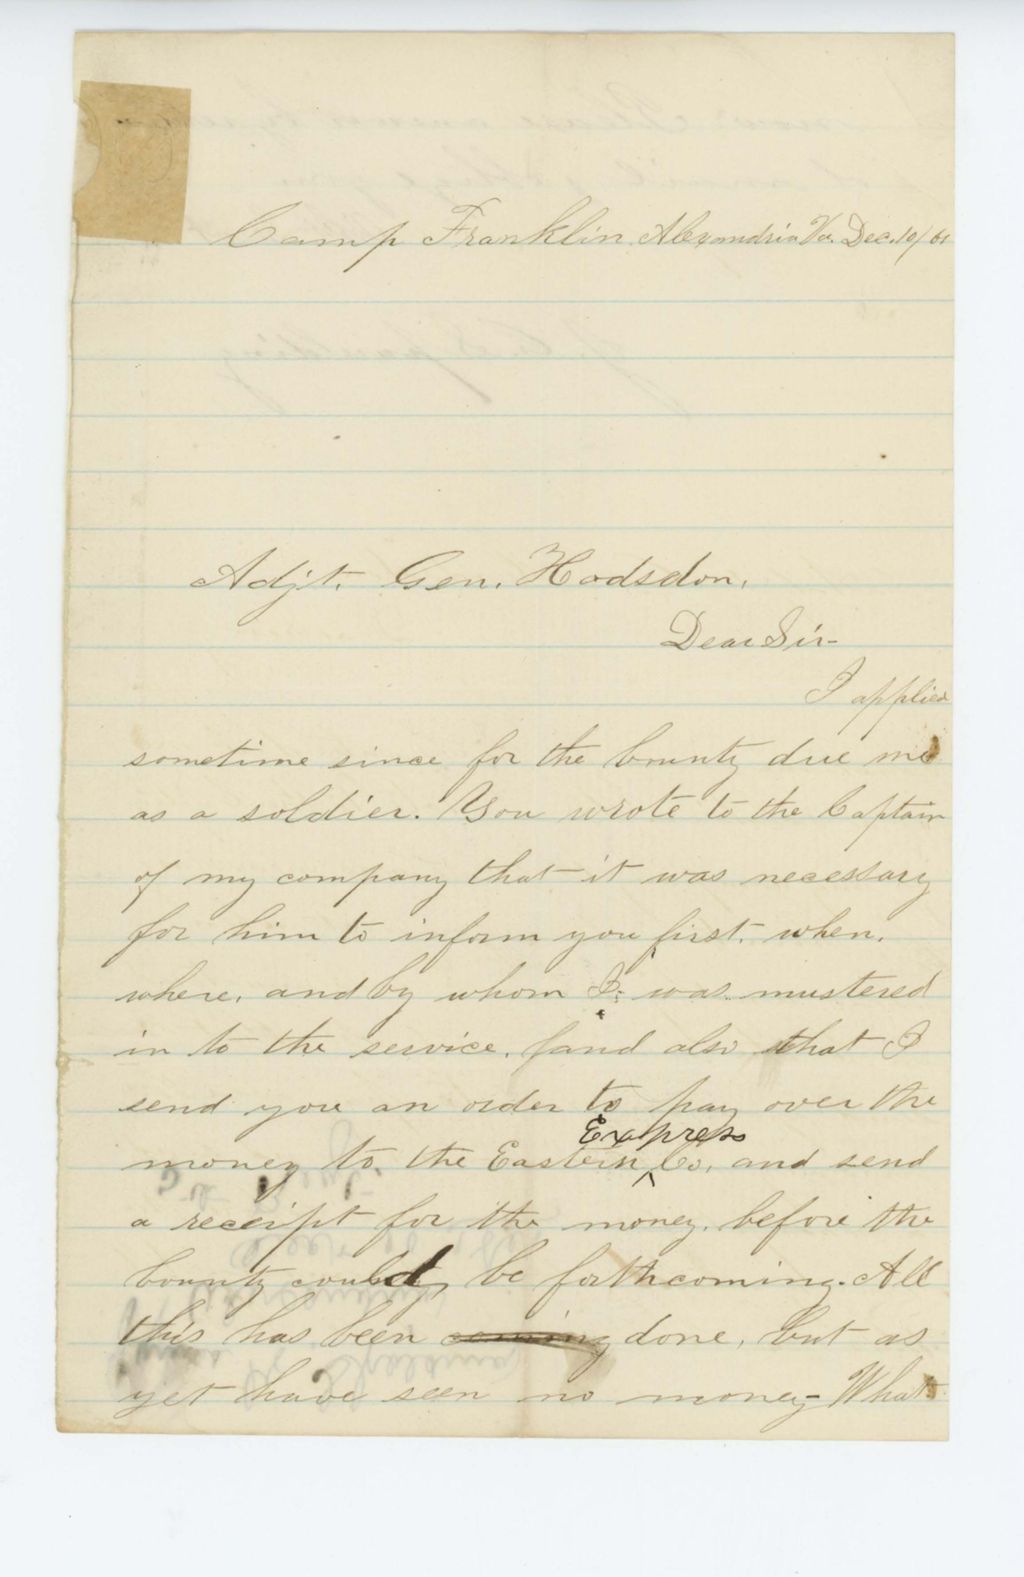 Camp Franklin Alexandria Va. Dec. 10/61
Adjt. Gen. Hodsdon,
Dear Sir-
I applied
sometime since for the bounty due me
as a soldier. You wrote to the Captain
of my company that it was necessary
for him to inform you first, when,
where, and by whom I was mustered
in to the service, (and also that I
send you an order to pay over the
Express
money to the Eastern ^ Co, and send
a receipt for the money, before the
bounty could be forthcoming. All
this has been coming done, but as
yet have seen no money- What